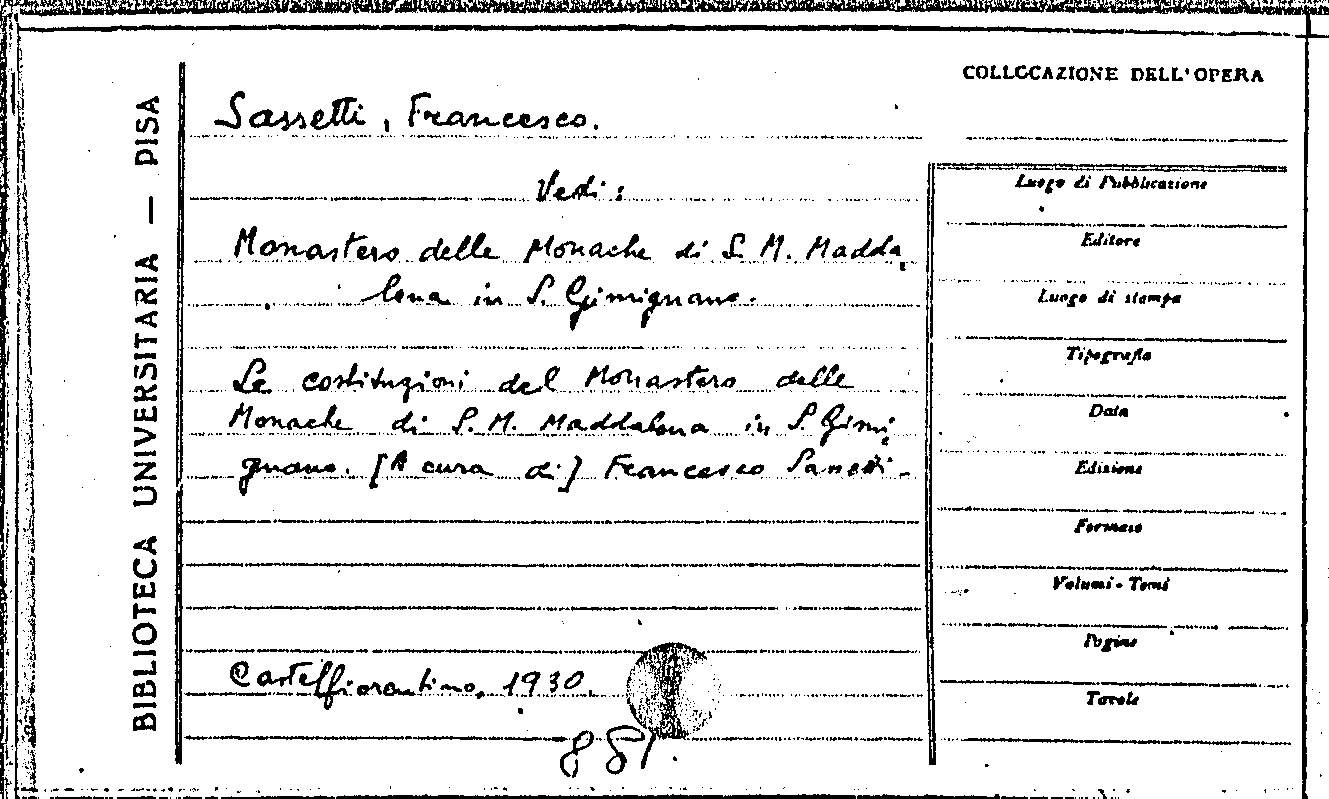 BIBLIOTECA UNIVERSITARIA — PISA
COLLOCAZIONE DELL'OPERA
Sassetti, Francesco.
Vedi:
Monastero delle Monache di S. M. Madda
lena in S. Gimignano.
Le costituzioni del Monastero delle
Monache di S. M. Maddalena in S. Gimi
gnano. [A cura di] Francesco Sassetti.
Castelfiorentino, 1930.
881.
Luogo di Pubblicazione
Editore
Luogo di stampa
Tipografia
Data
Edizione
Formato
Volumi - Tomi
Pagine
Tavole